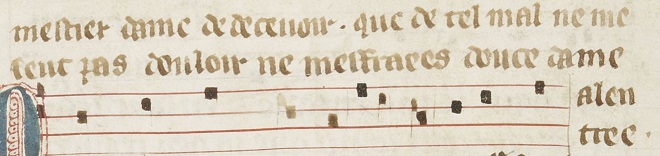 mestier dame de deceuoir. que de tel mal ne me
seut pas douloir ne messraees douce dame
alen
tree.